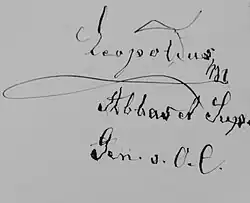 Leopoldus,
m
Abbas et Sup.
Gen. s. O. C.